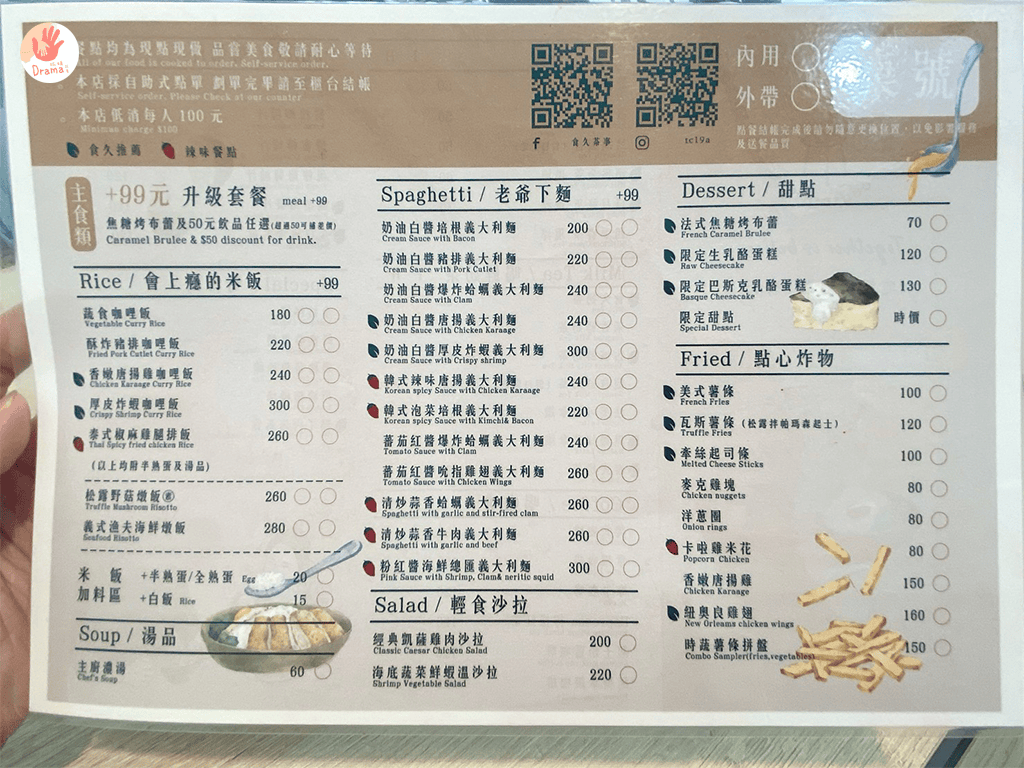 Drama
餐點均為現點現做 品嘗美食敬請耐心等待
of our food is cooked to order. Self-service order.
本店採自助式點單 劃單完畢請至櫃台結帳
Self-service order. Please Check at our counter
本店低消每人 100 元
Minimum charge $100
食久推薦 辣味餐點
食久茶事 tc19a
內用
外帶
號
點餐結帳完成後請勿隨意更換位置，以免影響服務
及送餐品質
主食類
+99元 升級套餐 meal +99
焦糖烤布蕾及50元飲品任選(超過50可補差價)
Caramel Brulee & $50 discount for drink.
Rice / 會上癮的米飯 +99
蔬食咖哩飯 180
Vegetable Curry Rice
酥炸豬排咖哩飯 220
Fried Pork Cutlet Curry Rice
香嫩唐揚雞咖哩飯 240
Chicken Karaage Curry Rice
厚皮炸蝦咖哩飯 300
Crispy Shrimp Curry Rice
泰式椒麻雞腿排飯 260
Thai Spicy fried chicken Rice
(以上均附半熟蛋及湯品)
松露野菇燉飯素 260
Truffle Mushroom Risotto
義式漁夫海鮮燉飯 280
Seafood Risotto
米飯加料區
+半熟蛋/全熟蛋 Egg 20
+白飯 Rice 15
Soup / 湯品
主廚濃湯 60
Chef's Soup
Spaghetti / 老爺下麵 +99
奶油白醬培根義大利麵 200
Cream Sauce with Bacon
奶油白醬豬排義大利麵 220
Cream Sauce with Pork Cutlet
奶油白醬爆炸蛤蠣義大利麵 240
Cream Sauce with Clam
奶油白醬唐揚義大利麵 240
Cream Sauce with Chicken Karage
奶油白醬厚皮炸蝦義大利麵 300
Cream Sauce with Crispy shrimp
韓式辣味唐揚義大利麵 240
Korean spicy Sauce with Chicken Karaage
韓式泡菜培根義大利麵 220
Korean spicy Sauce with Kimchi& Bacon
蕃茄紅醬爆炸蛤蠣義大利麵 240
Tomato Sauce with Clam
蕃茄紅醬吮指雞翅義大利麵 260
Tomato Sauce with Chicken Wings
清炒蒜香蛤蠣義大利麵 260
Spaghetti with garlic and stir-fired clam
清炒蒜香牛肉義大利麵 260
Spaghetti with garlic and beef
粉紅醬海鮮總匯義大利麵 300
Pink Sauce with Shrimp, Clam& neritic squid
Salad / 輕食沙拉
經典凱薩雞肉沙拉 200
Classic Caesar Chicken Salad
海底蔬菜鮮蝦溫沙拉 220
Shrimp Vegetable Salad
Dessert / 甜點
法式焦糖烤布蕾 70
French Caramel Brulee
限定生乳酪蛋糕 120
Raw Cheesecake
限定巴斯克乳酪蛋糕 130
Basque Cheesecake
限定甜點 時價
Special Dessert
Fried / 點心炸物
美式薯條 100
French Fries
瓦斯薯條 (松露拌帕瑪森起士) 120
Truffle Fries
牽絲起司條 100
Melted Cheese Sticks
麥克雞塊 80
Chicken nuggets
洋蔥圈 80
Onion rings
卡啦雞米花 80
Popcorn Chicken
香嫩唐揚雞 150
Chicken Karaage
紐奧良雞翅 160
New Orleams chicken wings
時蔬薯條拼盤 150
Combo Sampler(fries,vegetables)